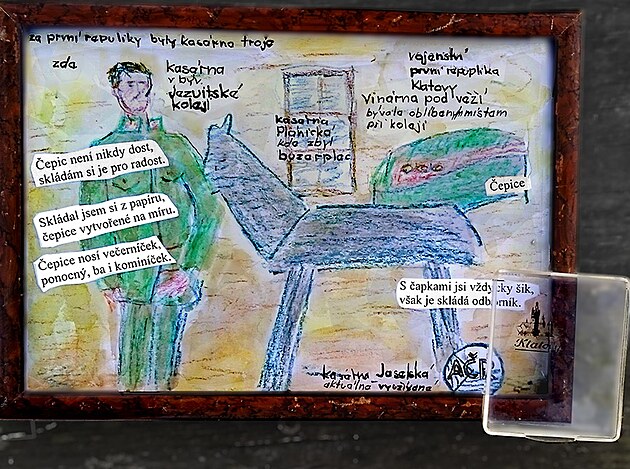 za první republiky byly kasárna troje
zda
kasárna
v býv
Jezuitské
koleji
vojenství
první republika
Klatovy
Vinárna pod věží
bývala oblíbeným místam
při koleji
kasárna
Plánická
kde zbyl
buzarplac
Čepic není nikdy dost,
skládám si je pro radost.
Skládal jsem si z papíru,
čepice vytvořené na míru.
Čepice nosí večerníček,
ponocný, ba i kominíček.
Čepice
S čapkami jsi vždycky šik,
však je skládá odborník.
kasárna Josefská
aktuálně využívaná
AČR